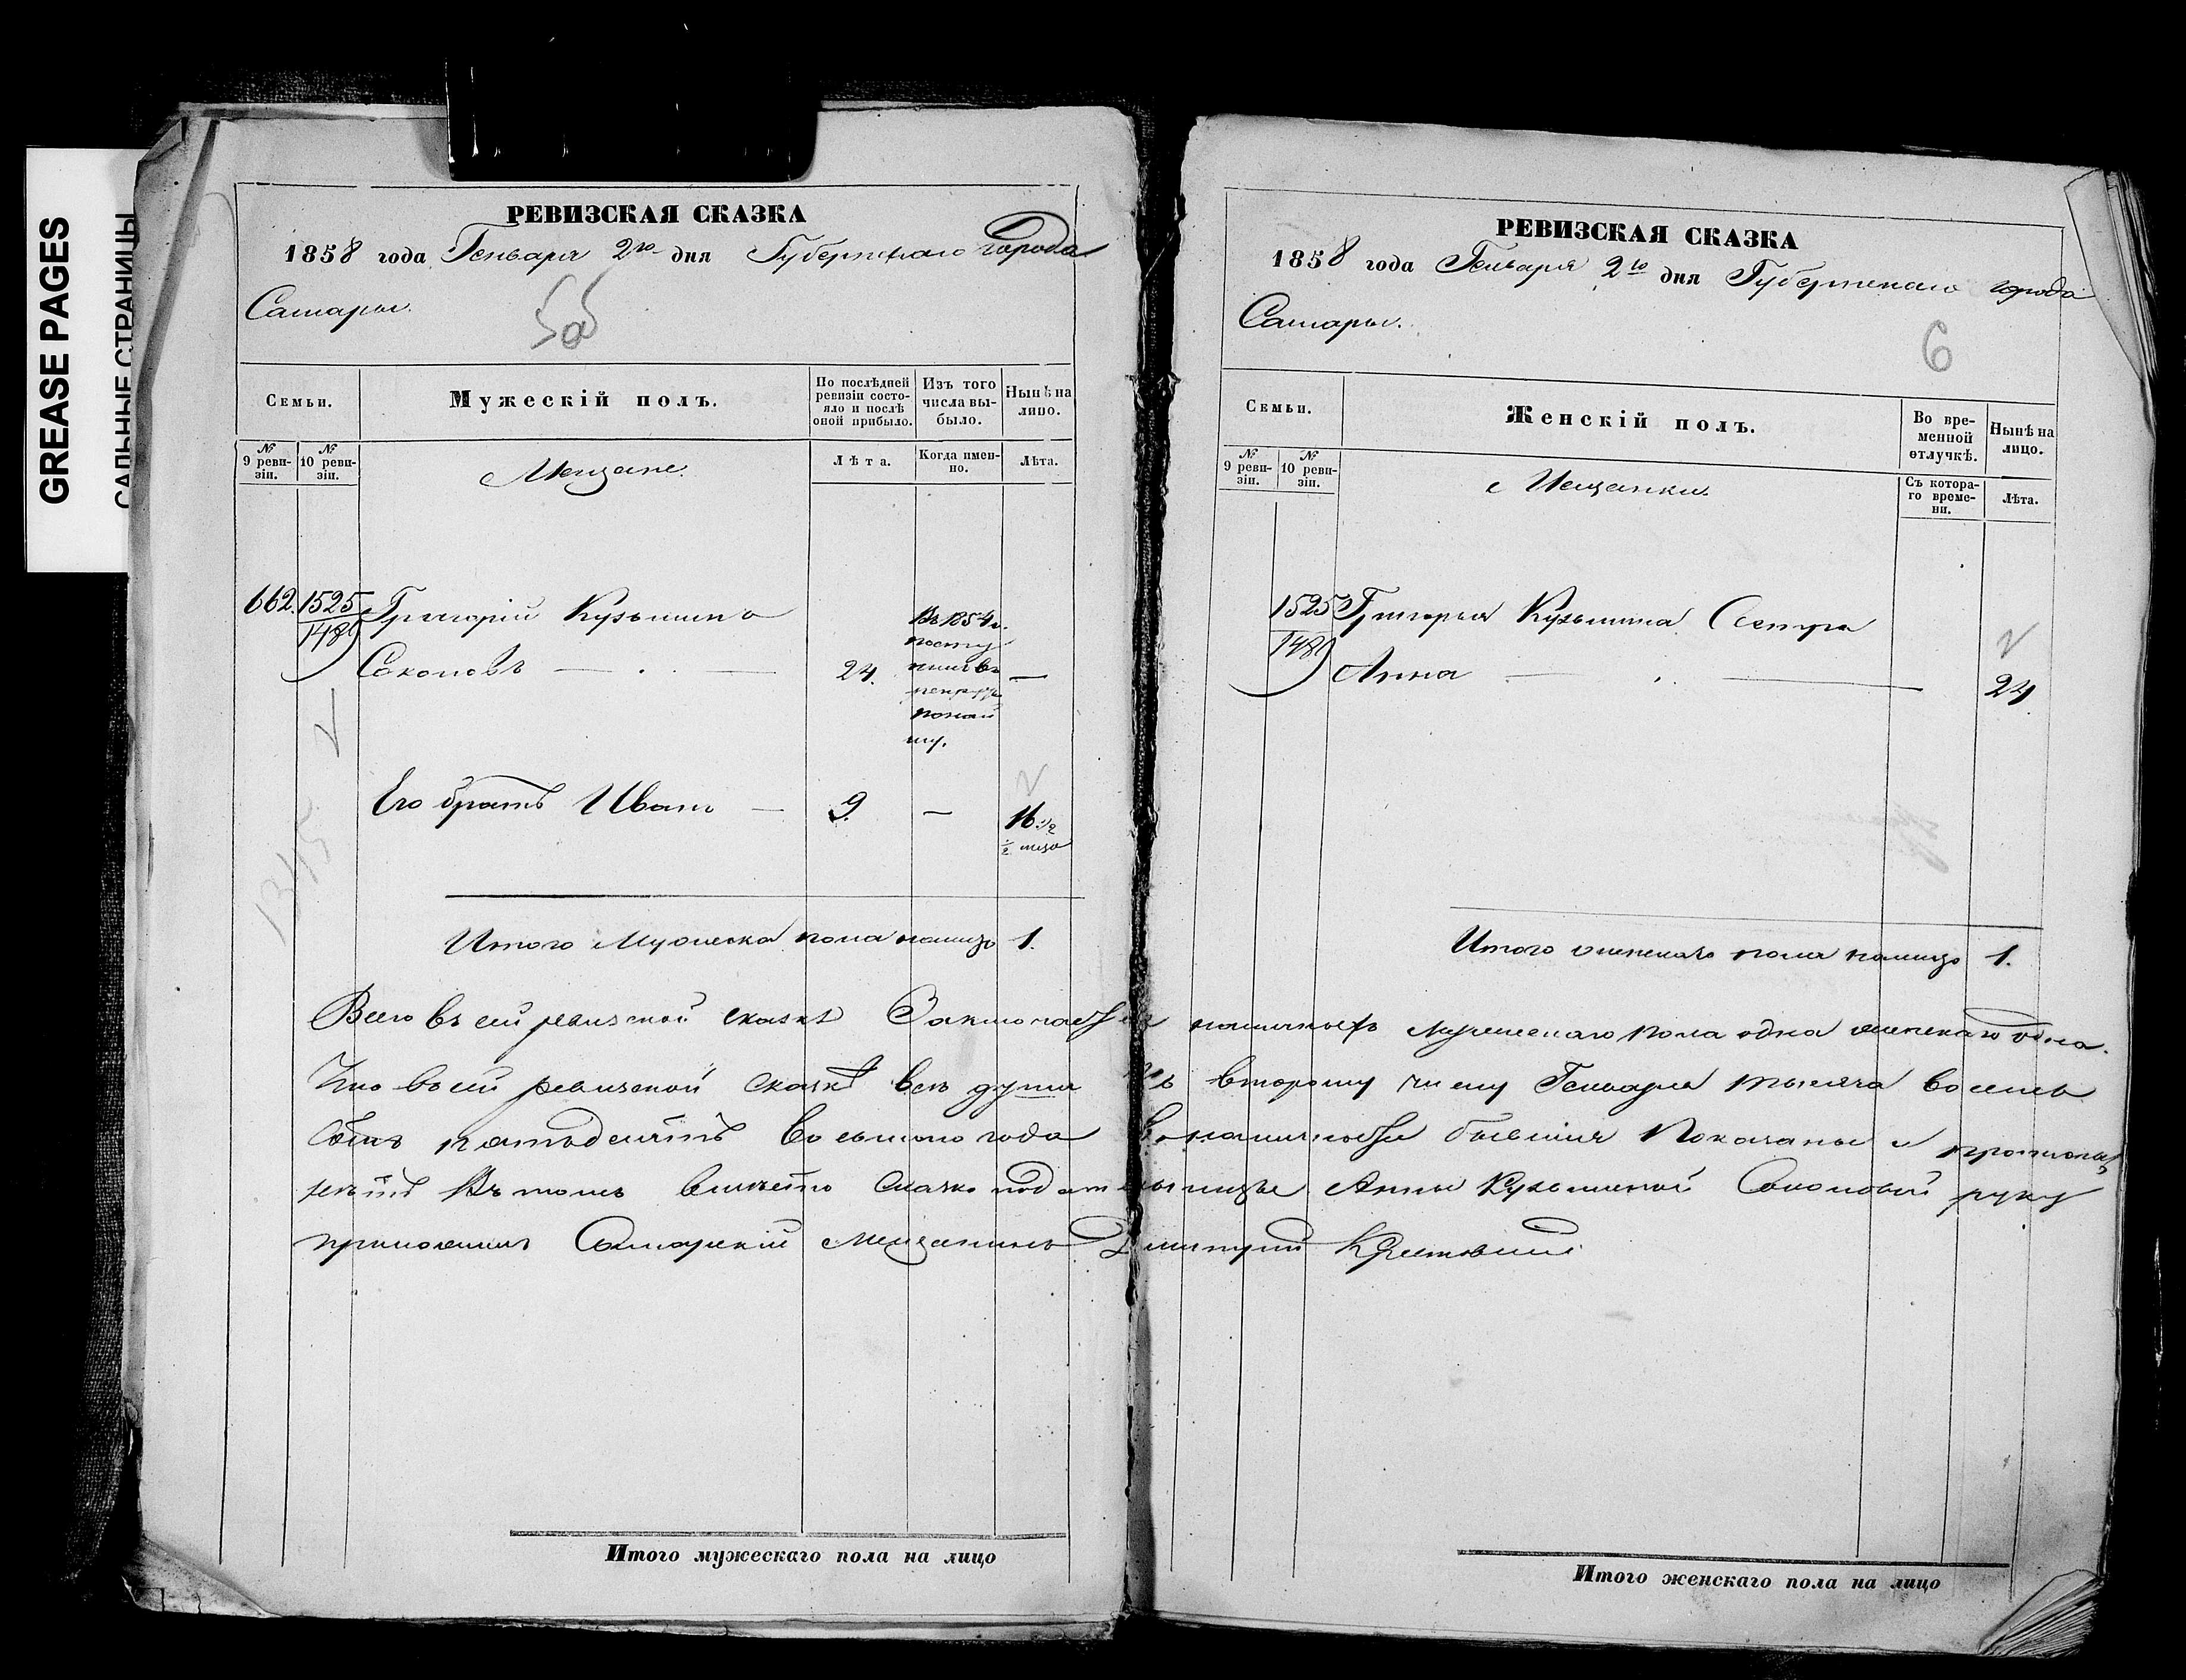 GREASE PAGES
САЛЬНЫЕ СТРАНИЦЫ
РЕВИЗСКАЯ СКАЗКА
1858 года Генваря 2го дня Губернскаго города
Самары.
5об
Семьи.
Мужескій полъ.
По послѣдней ревизіи состояло и послѣ оной прибыло.
Изъ того числа выбыло.
Нынѣ на лицо.
№ 9 ревизіи.
№ 10 ревизіи.
Мещане.
Лѣта.
Когда именно.
Лѣта.
662. 1525 Григорій Кузьминъ
1489
Соколовъ — . — 24. —
Въ 1854 г.
посту
пилъ въ
рекруты
по найму.
Его братъ Иванъ — 9. — 16 1/2
1345
Итого Мужеска пола налицо 1.
РЕВИЗСКАЯ СКАЗКА
1858 года Генваря 2го дня Губернскаго города
Самары.
6
Семьи.
Женскій полъ.
Во временной отлучкѣ.
Нынѣ на лицо.
№ 9 ревизіи.
№ 10 ревизіи.
Мещанки.
Съ котораго времени.
Лѣта.
1525 Григорья Кузьмина Сестра
1489
Анна — . — 24.
Итого женскаго пола налицо 1.
Всего въ сей ревизской сказкѣ Заключается мужескаго пола одна женскаго одна.
Что въ сей ревизской сказкѣ всѣ души ко второму числу Генваря тысяча восемь
сотъ пятьдесятъ восьмаго года въ наличности бывшія Показаны и
въ томъ вмѣсто Анны Кузьминой Соколовой руку
приложилъ Самарскій мещанинъ Дмитрій
Итого мужескаго пола на лицо
Итого женскаго пола на лицо